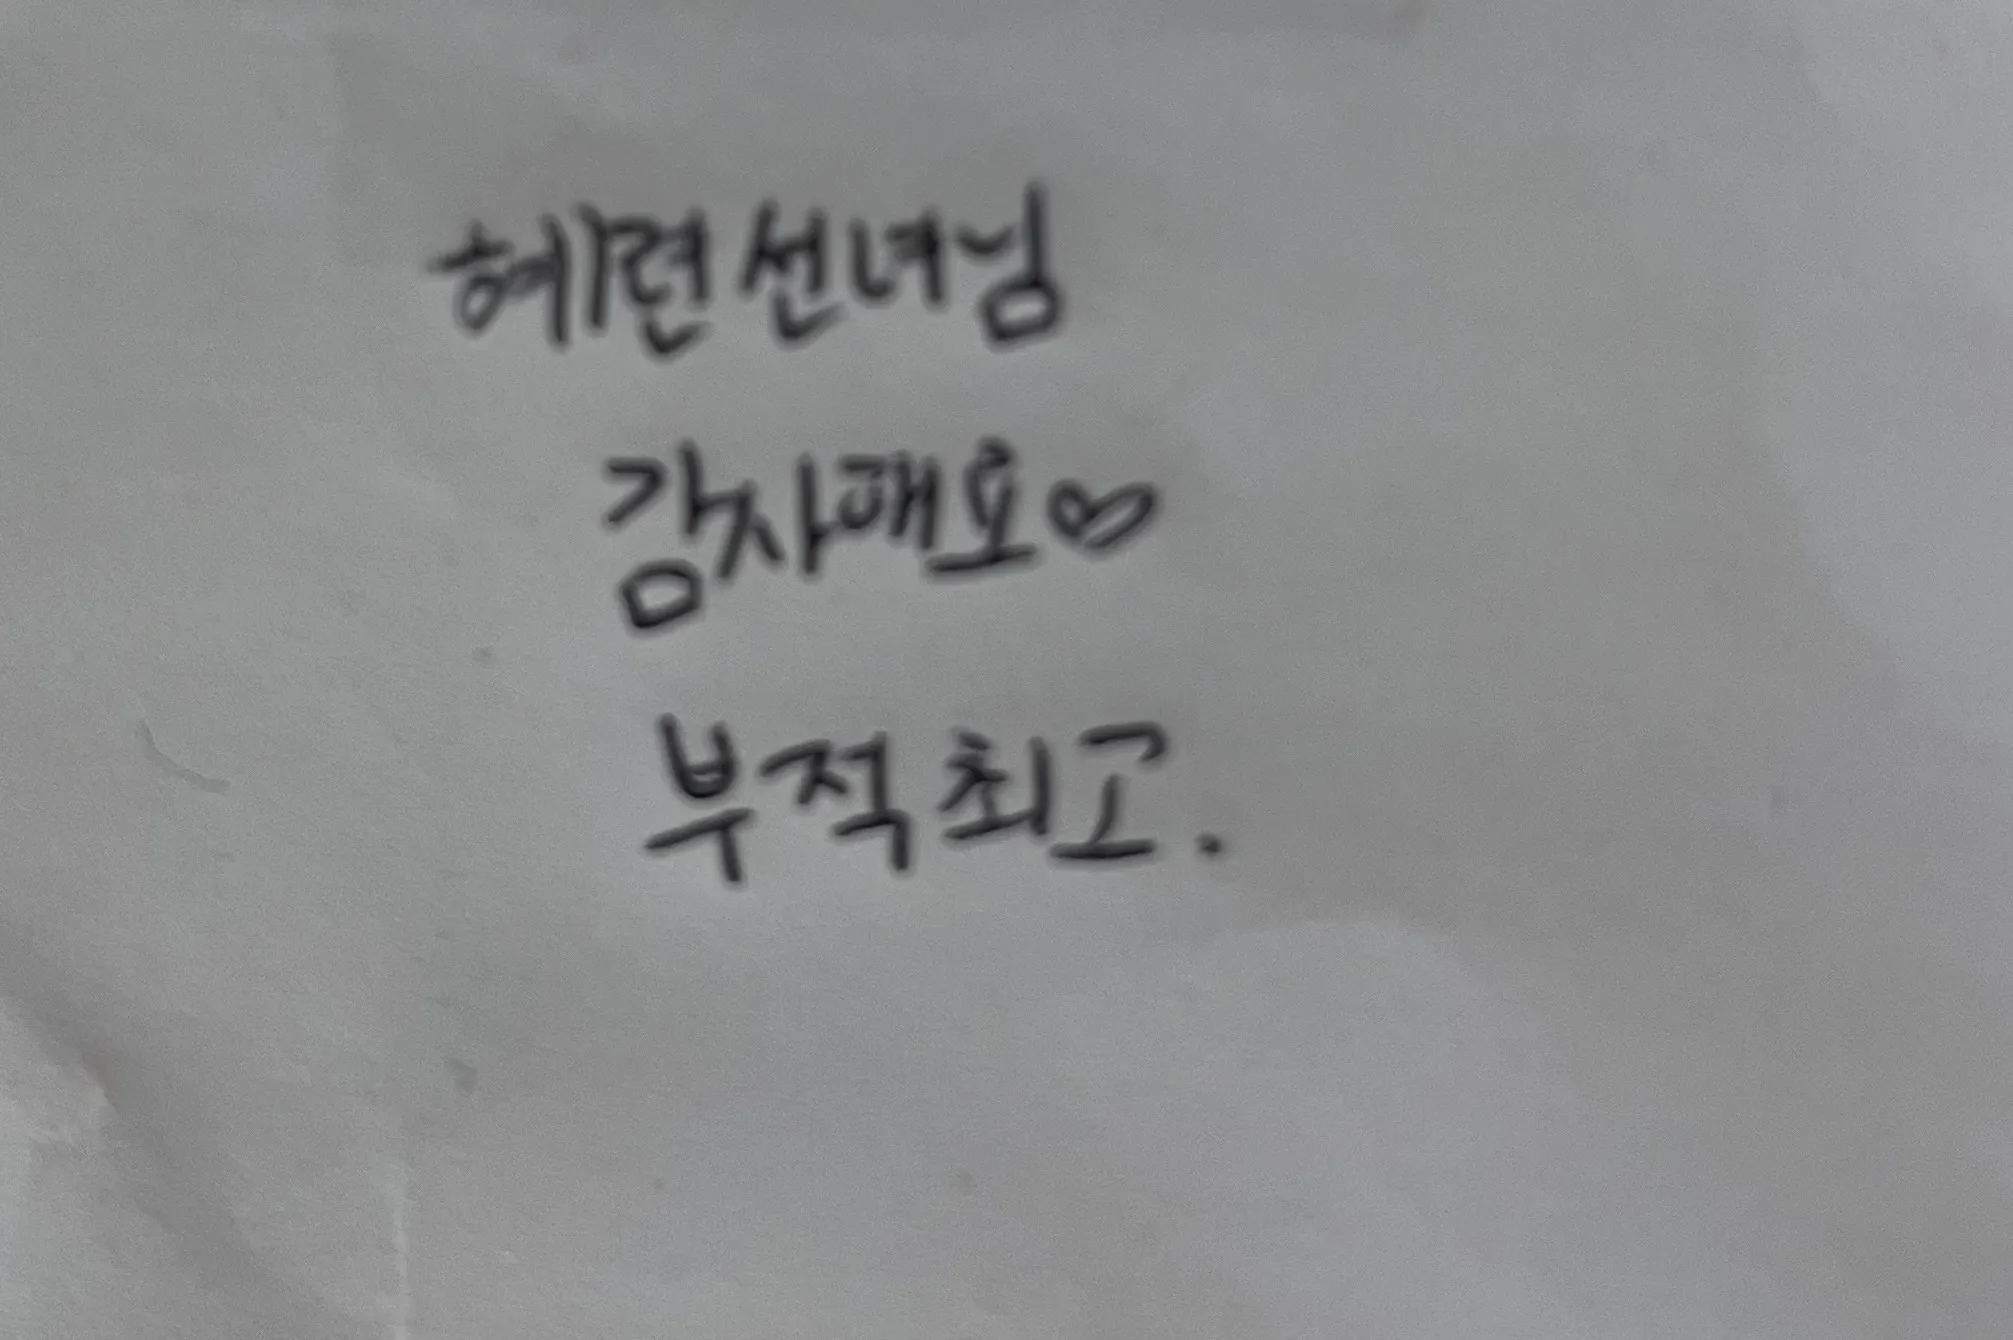 혜련선녀님
감사해요♡
부적최고.